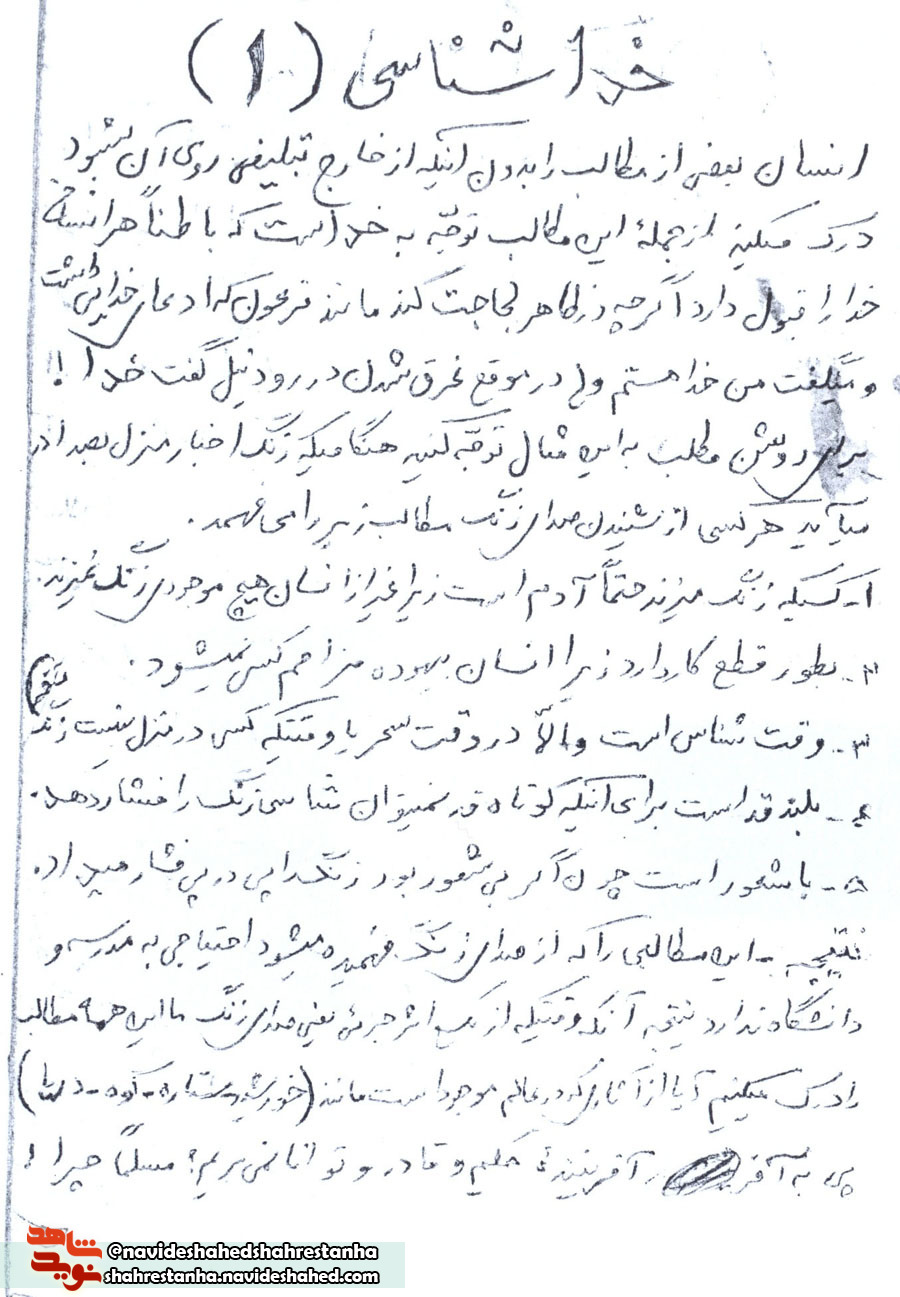 خداشناسی (۱)
انسان بعضی از مطالب را بدون اینکه از خارج تبلیغی روی آن بشود
درک میکند از جملهٔ این مطالب توجّه به خداست که باطناً هر انسانی
خدا را قبول دارد اگرچه در ظاهر لجاجت کند مانند فرعون که ادعای خدایی داشت
و میگفت من خدا هستم ولی در موقع غرق شدن در رود نیل گفت خدا!
برای روشن مطلب به این مثال توجّه کنید هنگامیکه زنگ اخبار منزل بصدا در
میآید هر کسی از شنیدن صدای زنگ مطالب زیر را می فهمد.
۱- کسیکه زنگ میزند حتماً آدم است زیرا غیر از انسان هیچ موجودی زنگ نمیزند.
۲- بطور قطع کار دارد زیرا انسان بیهوده مزاحم کسی نمیشود.
۳- وقت شناس است والّا در وقت سحر یا وقتیکه کسی در منزل نیست زنگ نمیزند
۴- بلند قد است برای اینکه کوتاه قد نمیتوان شاسی زنگ را فشار دهد.
۵- با شعور است چون اگر بی شعور بود زنگ را پی در پی فشار میداد.
نتیجه - این مطالبی را که از صدای زنگ فهمیده میشود احتیاجی به مدرسه و
دانشگاه ندارد نتیجه آنکه وقتیکه از یک اثر جزئی یعنی صدای زنگ ما این همه مطالب
را درک میکنیم آیا از آثاری که در عالم موجود است مانند (خورشید-ستاره-کوه-دریا)
پی به آفرینندهٔ حکیم و قادر و توانا نمی بریم؟ مسلماً چرا!
شاهد
نوید
@navideshahedshahrestanha
shahrestanha.navideshahed.com